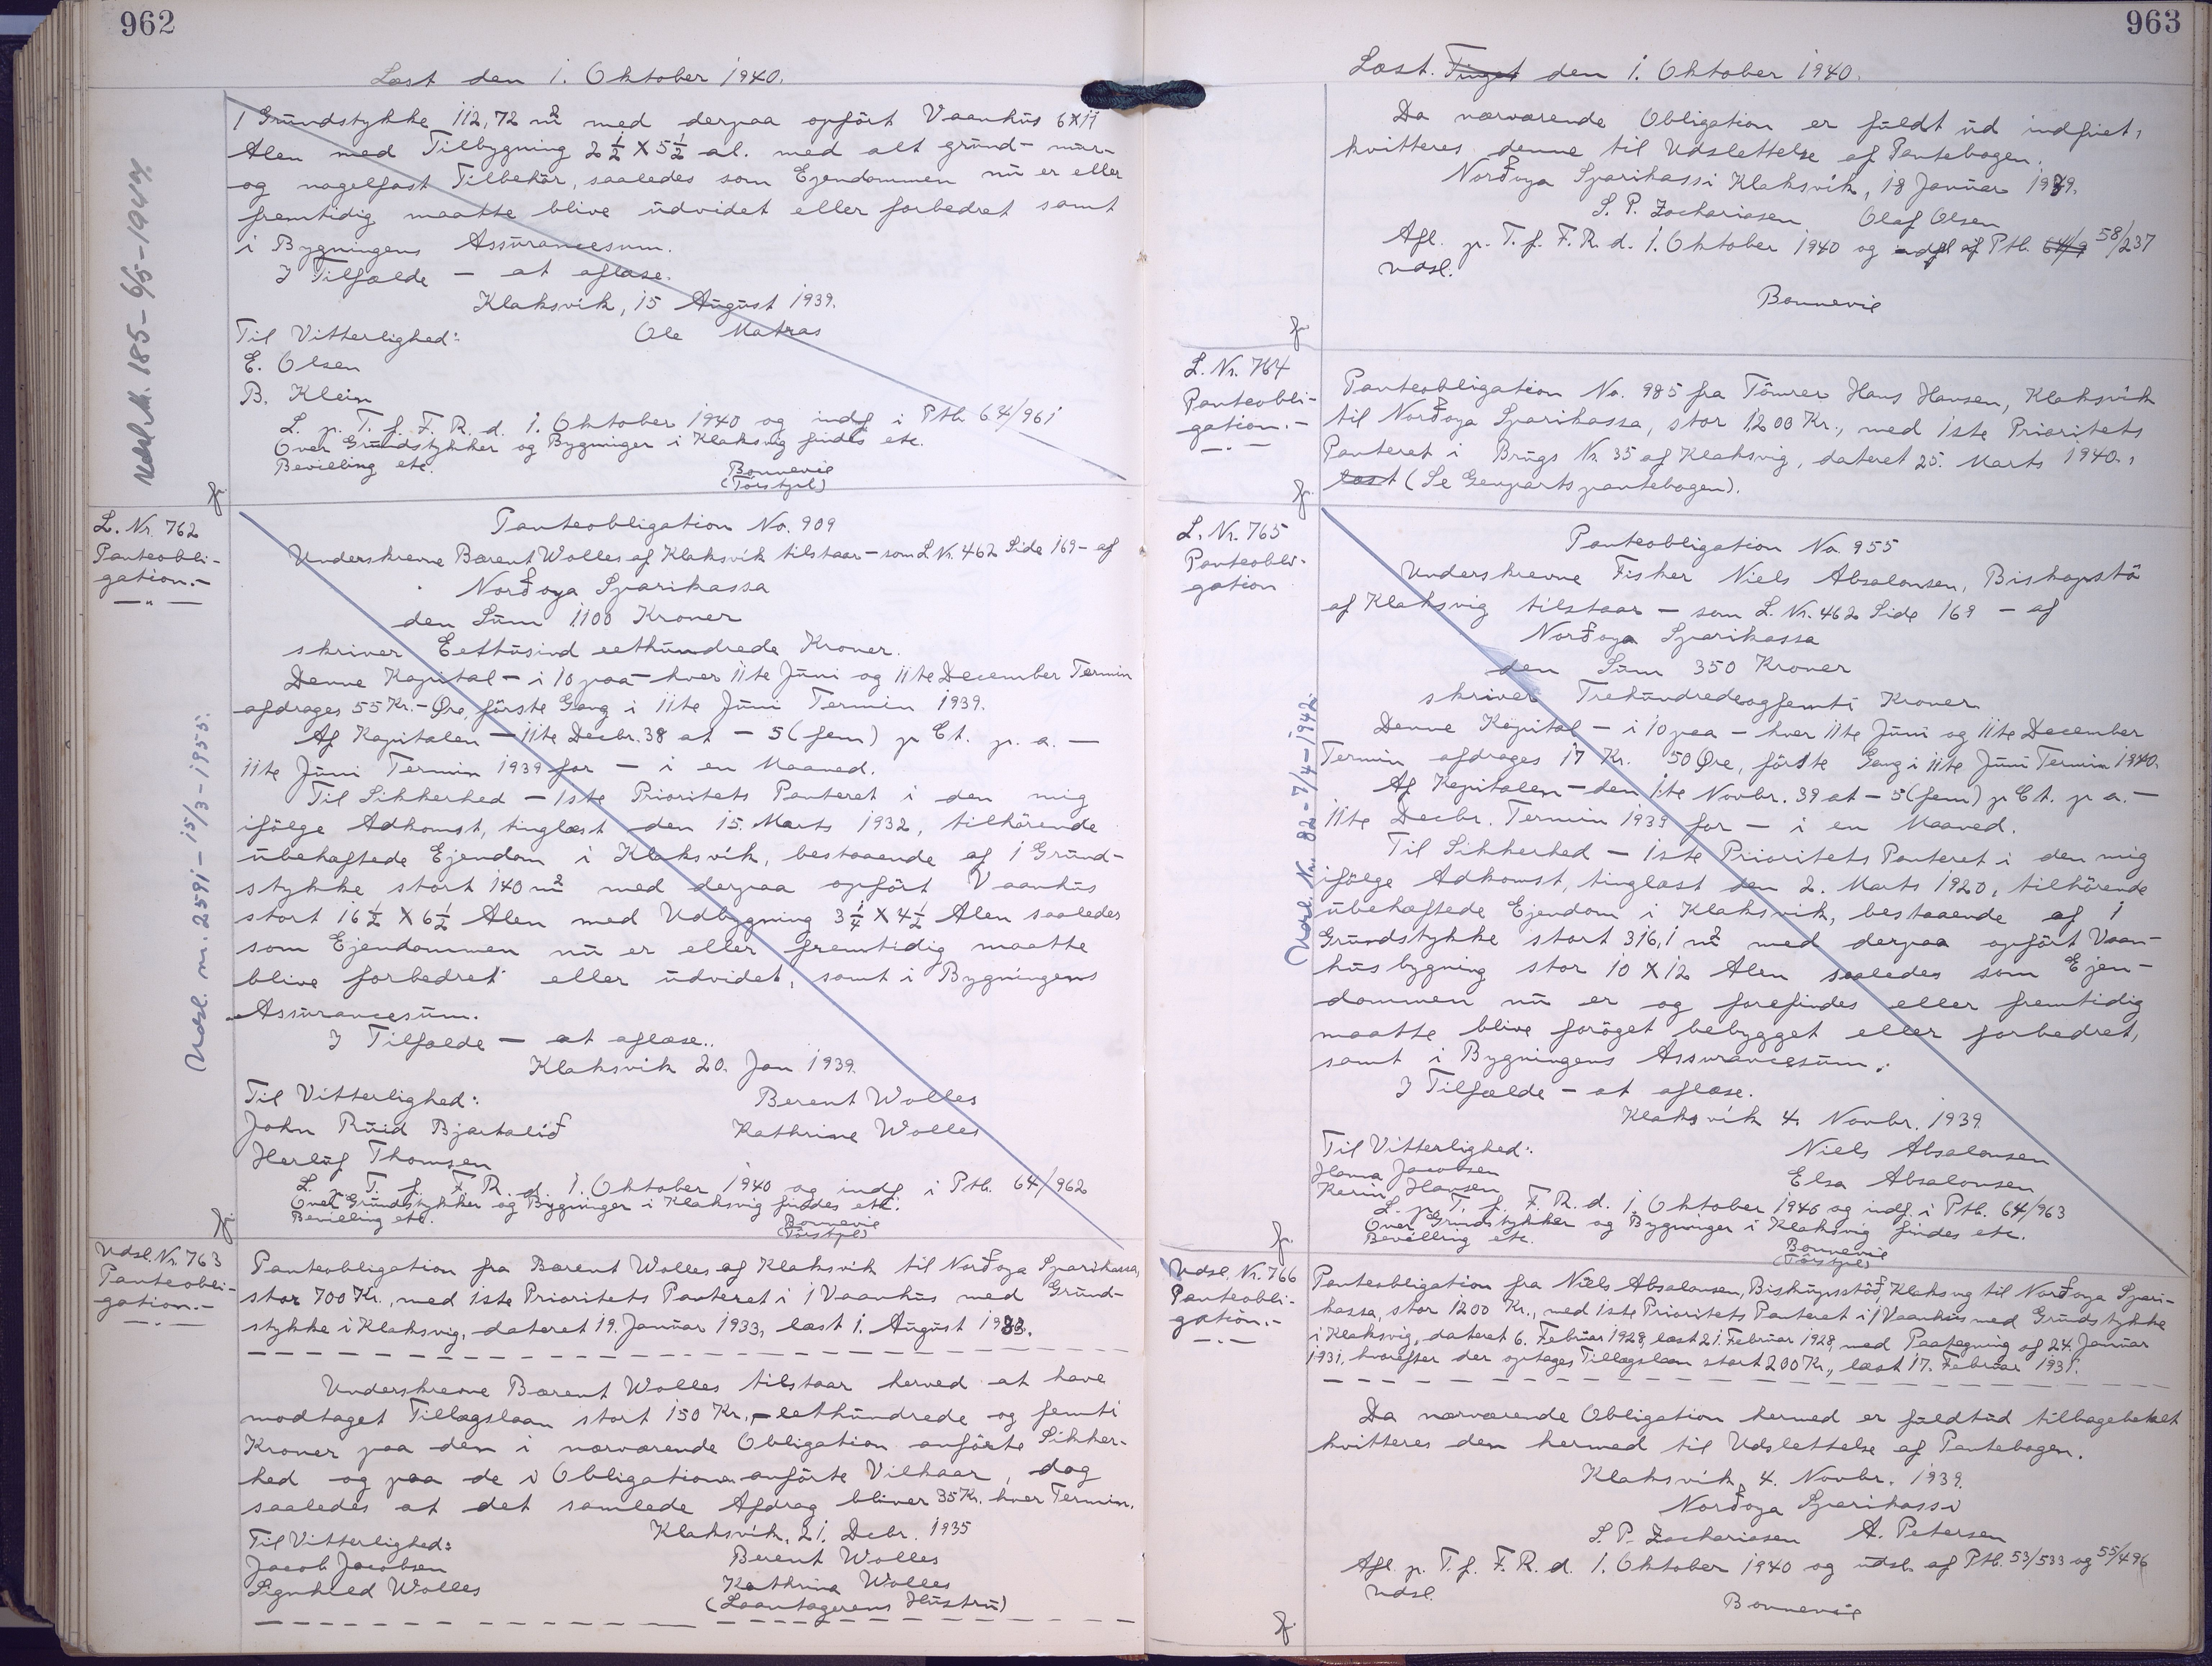 962
Læst den 1. Oktober 1940.
1 Grundstykke 112,72 m² med derpaa opført Vaanhus 6x11
Alen med Tilbygning 2½ x 5½ al. med alt grund- mur-
og nagelfast Tilbehør, saaledes som Ejendommen nu er eller
fremtidig maatte blive udvidet eller forbedret samt
i Bygningens Assurancesum.
I Tilfælde — at aflæse.
Klaksvík, 15 August 1939.
Til Vitterlighed: Ole Matras
E. Olsen
B. Klein
L. p. T. f. F. R. d. 1. Oktober 1940 og indf. i Ptb. 64/961
Over Grundstykker og Bygninger i Klaksvig findes etc.
Bevilling etc. Bonnevie
(Torstpl)
Udsl. Nr. 185 - 6/5 - 1944
fr.
L. Nr. 762
Panteobli-
gation.-
Panteobligation No. 909
Underskrevne Barent Wolles af Klaksvík tilstaar — som L Nr. 462 Side 169 — af
Norðoya Sparikassa
den Sum 1100 Kroner
skriver Eettusind eethundrede Kroner.
Denne Kapital — i 10 paa — hver 11te Juni og 11te December Termin
afdrages 55 Kr. - Øre, første Gang i 11te Juni Termin 1939.
Af Kapitalen — 11te Decbr. 38 at — 5 (fem) p Ct. p. a. —
11te Juni Termin 1939 for — i en Maaned.
Til Sikkerhed — 1ste Prioritets Panteret i den mig
ifølge Adkomst, tinglæst den 15. Marts 1932, tilhørende
ubehæftede Ejendom i Klaksvík, bestaaende af 1 Grund-
stykke stort 140 m² med derpaa opført Vaanhus
stort 16½ X 6½ Alen med Udbygning 3¼ X 4½ Alen saaledes
som Ejendommen nu er eller fremtidig maatte
blive forbedret eller udvidet, samt i Bygningens
Assurancesum.
I Tilfælde — at aflæse..
Klaksvík 20. Jan 1939.
Til Vitterlighed: Berent Wolles
John Ruid Bjartalíð Kathrine Wolles
Herluf Thomsen
L. p. T. f. F. R. d. 1. Oktober 1940 og indf. i Ptb. 64/962
Over Grundstykker og Bygninger i Klaksvig findes etc.
Bevilling etc. Bonnevie
(Torstpl)
Udsl. nr. 2591 - 15/3 - 1955.
fr.
Udsl. Nr. 763
Panteobli-
gation.-
Panteobligation fra Barent Wolles af Klaksvík til Norðoya Sparikassa,
stor 700 Kr., med 1ste Prioritets Panteret i 1 Vaanhus med Grund-
stykke i Klaksvig, dateret 19. Januar 1933, læst 1. August 1933.
Underskrevne Barent Wolles tilstaar herved at have
modtaget Tillægslaan stort 150 Kr., - eethundrede og femti
Kroner paa den i nærværende Obligation anførte Sikker-
hed og paa de i Obligationen anførte Vilkaar, dog
saaledes at det samlede Afdrag bliver 35 Kr. hver Termin.
Klaksvík, 21. Dcbr. 1935
Til Vitterlighed: Berent Wolles
Jacob Jacobsen Kathrina Wolles
Signhild Wolles (Laantagerens Hustru)
963
Læst. Tinget den 1. Oktober 1940.
Da nærværende Obligation er fuldt ud indfriet,
kvitteres denne til Udslettelse af Pantebogen.
Norðoya Sparikassi Klaksvík, 18 Januar 1939.
S. P. Zachariasen Olaf Olsen
Afl. p. T. f. F. R. d. 1. Oktober 1940 og udsl af Ptb. 58/237
Udsl.
Bonnevie
fr.
L. Nr. 764
Panteobli-
gation.-
Panteobligation No. 985 fra Tømrer Hans Hansen, Klaksvík
til Norðoya Sparikassa, stor 1200 Kr., med 1ste Prioritets
Panteret i Brugs Nr. 35 af Klaksvig, dateret 25. Marts 1940.,
læst (Se Genpartspantebogen).
fr.
L. Nr. 765
Panteobli-
gation
Panteobligation No. 955
Underskrevne Fisker Niels Absalonsen, Biskopstö
af Klaksvig tilstaar — som L. Nr. 462 Side 169 — af
Norðoya Sparikassa
den Sum 350 Kroner
skriver Trehundredeogfemti Kroner
Denne Kapital — i 10 paa — hver 11te Juni og 11te December
Termin afdrages 17 Kr. 50 Øre, første Gang i 11te Juni Termin 1940.
Af Kapitalen — den 1te Novbr. 39 at — 5 (fem) p Ct. p a. —
11te Decbr. Termin 1939 for — i en Maaned.
Til Sikkerhed — 1ste Prioritets Panteret i den mig
ifølge Adkomst, tinglæst den 2. Marts 1920, tilhørende
ubehæftede Ejendom i Klaksvík, bestaaende af 1
Grundstykke stort 316,1 m² med derpaa opført Vaan-
husbygning stor 10 X 12 Alen saaledes som Ejen-
dommen nu er og forefindes eller fremtidig
maatte blive forøget bebygget eller forbedret,
samt i Bygningens Assurancesum.
I Tilfælde — at aflæse.
Klaksvík 4. Novbr. 1939.
Til Vitterlighed: Niels Absalonsen
Jacobsen Elsa Absalonsen
Karin Hansen
L. p. T. f. F. R. d. 1. Oktober 1940 og indf. i Ptb. 64/963
Over Grundstykker og Bygninger i Klaksvig findes etc.
Bevilling etc. Bonnevie
(Torstpl)
Udsl. Nr. 82 - 7/4 - 1942.
fr.
Udsl. Nr. 766
Panteobli-
gation.-
Panteobligation fra Niels Absalonsen, Biskupsstöð, Klaksvig til Norðoya Spari-
kassa, stor 1200 Kr., med 1ste Prioritets Panteret i 1 Vaanhus med Grundstykke
i Klaksvig, dateret 6. Februar 1928, læst 21. Februar 1928, med Paategning af 24. Januar
1931, hvorefter der optages Tillægslaan stort 200 Kr., læst 17. Februar 1931.
Da nærværende Obligation hermed er fuldtud tilbagebetalt
kvitteres den hermed til Udslettelse af Pantebogen.
Klaksvík, 4. Novbr. 1939.
Norðoya Sparikassi
S. P. Zachariasen A. Petersen
Afl. p. T. f. F. R. d. 1. Oktober 1940 og udsl. af Ptb. 53/533 og 55/496
Udsl.
Bonnevie
fr.